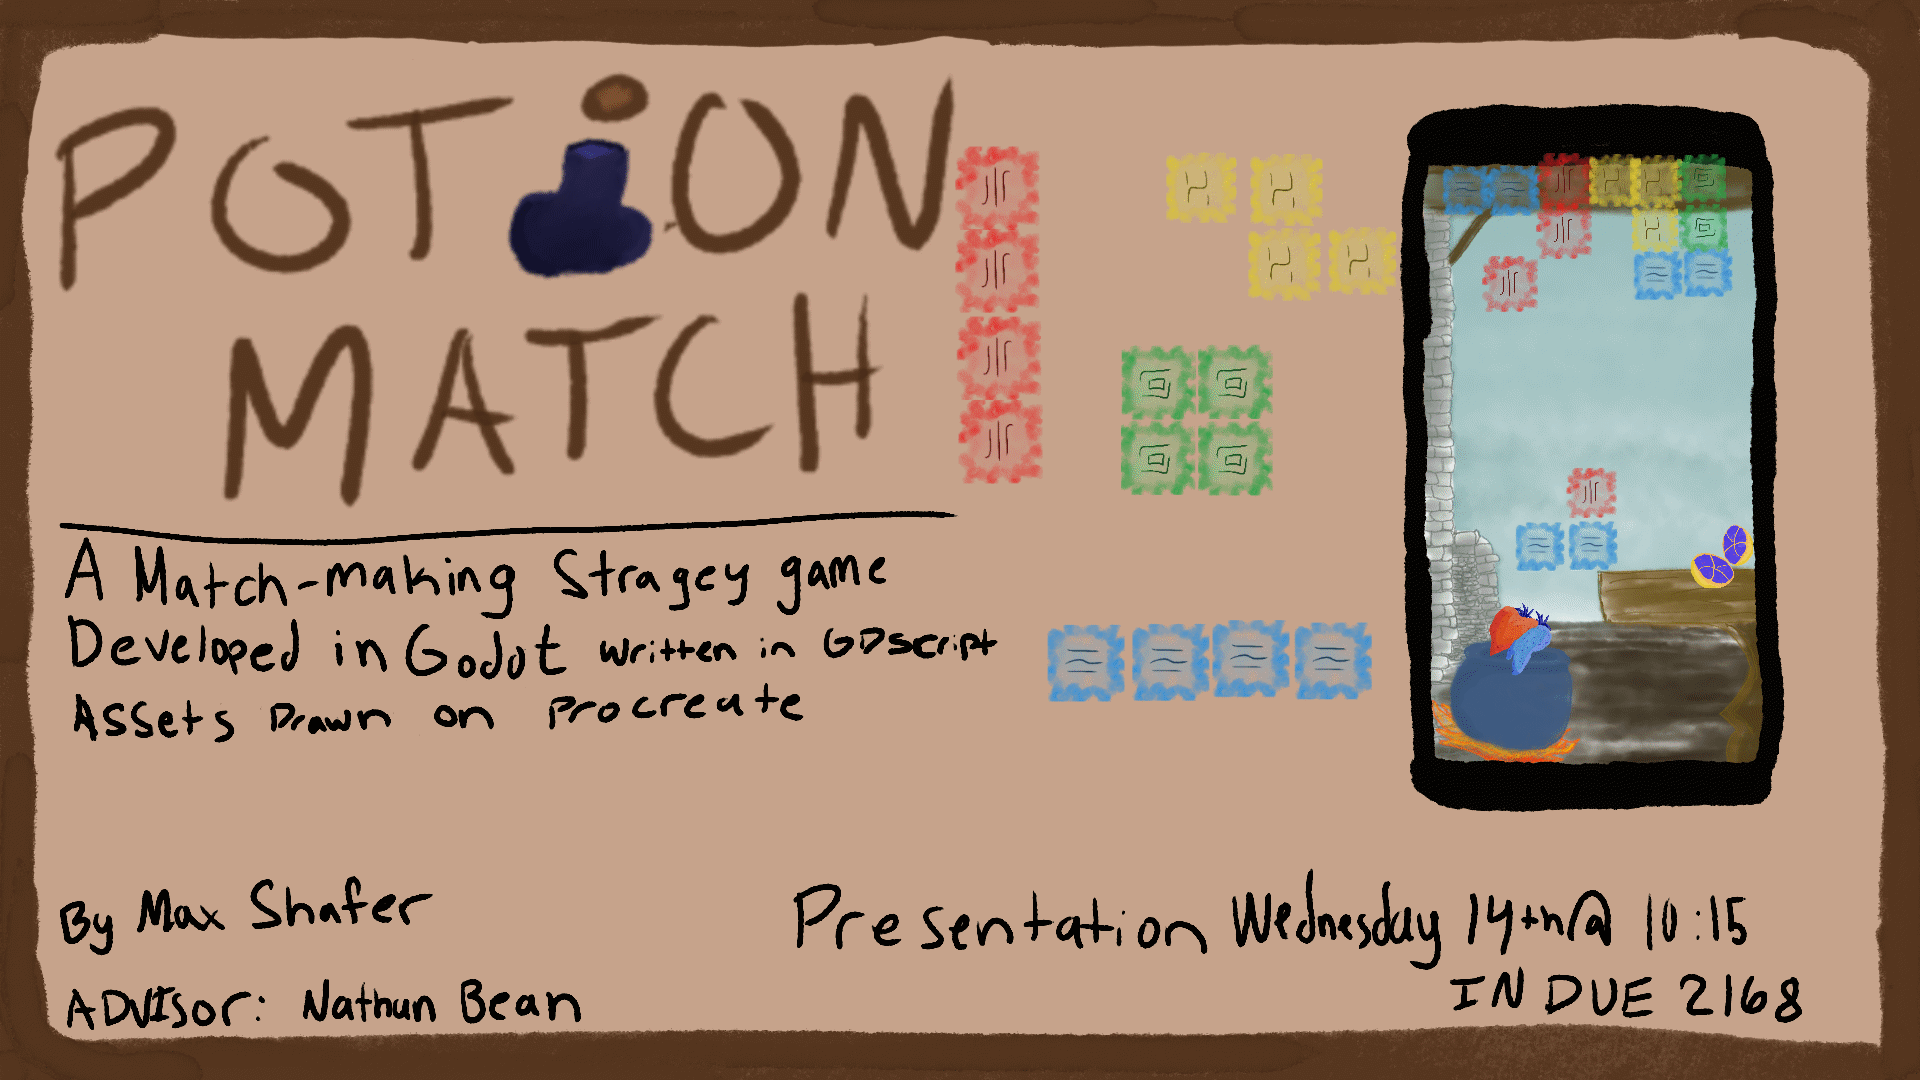 POTiON
MATCH
A Match-making Stragey game
Developed in Godot written in GDscript
Assets Drawn on Procreate
By Max Shafer
ADVISor: Nathun Bean
Presentation Wednesday 14th@ 10:15
IN DUE 2168